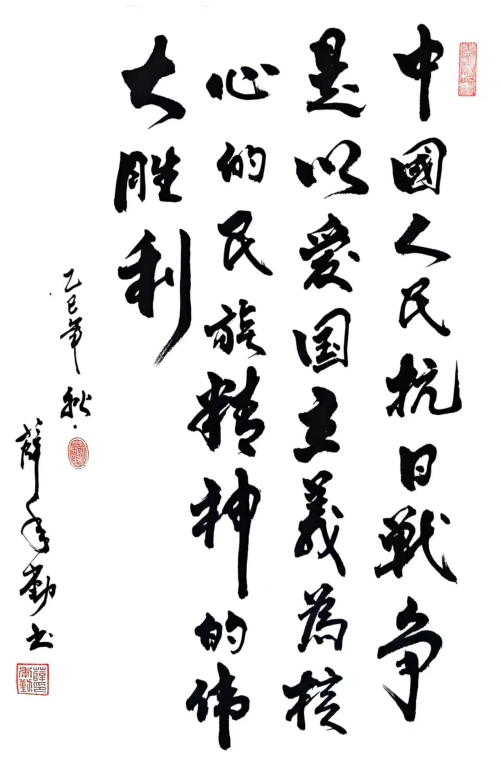 中國人民抗日戰争
是以爱国主義為核
心的民族精神的伟
大胜利
乙巳年秋
薛孝勤书